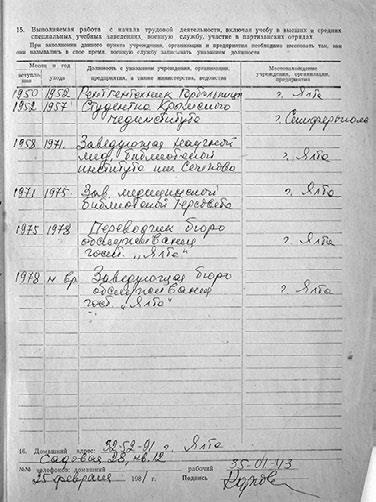 15. Выполняемая работа с начала трудовой деятельности, включая учебу в высших и средних
специальных учебных заведениях, военную службу, участие в партизанских отрядах
При заполнении данного пункта учреждения, организации и предприятия необходимо именовать так, как
они назывались в свое время, военную службу записывать с указанием должности
Месяц и год
вступления
ухода
Должность с указанием учреждения, организации,
предприятия, а также министерства, ведомства
Местонахождение
учреждения, организации,
предприятия
1950 1952 Рентгентехник Горбольницы г. Ялта
1952 1957 Студентка Крымского
мединститута г. Симферополь
1958 1971 Заведующая научной
мед. библиотекой
института им Сеченова г. Ялта
1971 1975 Зав. медицинской
библиотекой г. Ялта
1975 1978 Переводчик бюро
обслуживания
гост. „Ялта" г. Ялта
1978 н вр. Заведующая бюро
обслуживания
гост. „Ялта" г. Ялта
16. Домашний адрес: г. Ялта
Садовая 28, кв. 12
№№ телефонов: домашний 32-52-91 рабочий 35-01-43
25 февраля 1981 г. Подпись